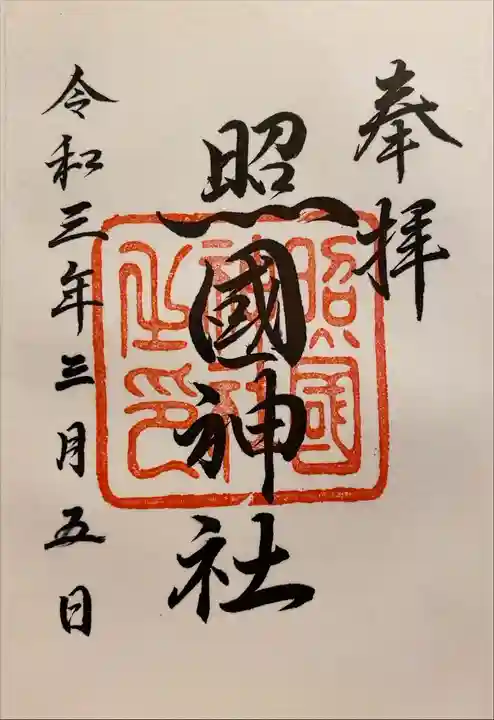 奉拝
照國神社
令和三年三月五日
照國
神社
之印